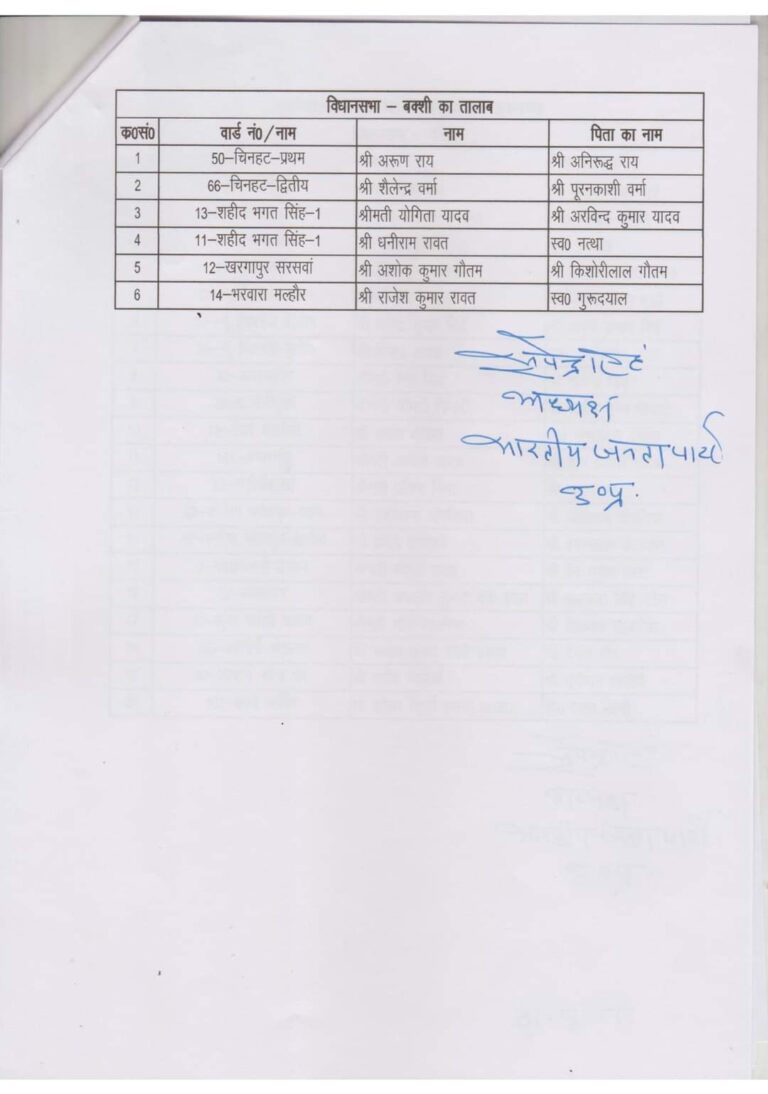 विधानसभा – बक्शी का तालाब
क०सं० वार्ड नं०/नाम नाम पिता का नाम
1 50–चिनहट–प्रथम श्री अरूण राय श्री अनिरूद्ध राय
2 66–चिनहट–द्वितीय श्री शैलेन्द्र वर्मा श्री पूरनकाशी वर्मा
3 13–शहीद भगत सिंह–1 श्रीमती योगिता यादव श्री अरविन्द कुमार यादव
4 11–शहीद भगत सिंह–1 श्री धनीराम रावत स्व० नत्था
5 12–खरगापुर सरसवां श्री अशोक कुमार गौतम श्री किशोरीलाल गौतम
6 14–भरवारा मल्हौर श्री राजेश कुमार रावत स्व० गुरूदयाल
अध्यक्ष
भारतीय जनता पार्टी
उ०प्र.